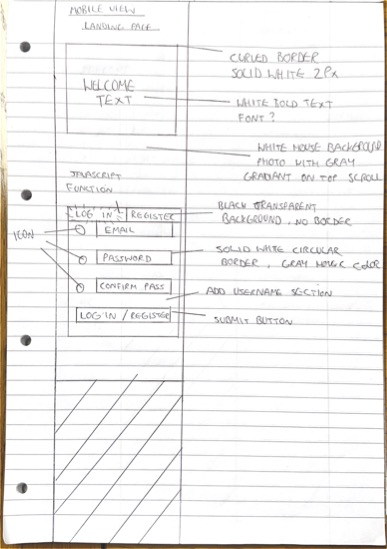 MOBILE VIEW
LANDING PAGE
CURVED BORDER
SOLID WHITE 2Px
WELCOME
TEXT
WHITE BOLD TEXT
FONT?
WHITE MOUSE BACKGROUND
PHOTO WITH GRAY
GRADIANT ON TOP SCROLL
JAVASCRIPT
FUNCTION
LOG IN
REGISTER
BLACK TRANSPARENT
BACKGROUND, NO BORDER
ICON
EMAIL
PASSWORD
SOLID WHITE CIRCULAR
BORDER, GRAY HOVER COLOR
CONFIRM PASS
ADD USERNAME SECTION
LOG IN / REGISTER
SUBMIT BUTTON